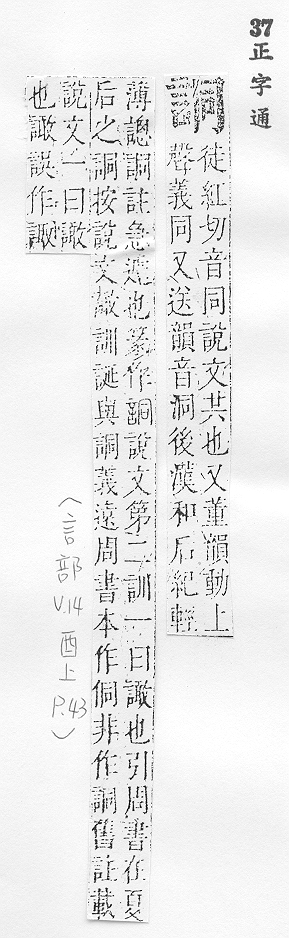 37正字通
詷 徒紅切音同說文共也又董韻動上
聲義同又送韻音洞後漢和后紀輕
薄謥詷註急遽也篆作詷說文第二訓一曰譀也引周書在夏
后之詷按說文譀訓誕與詷義遠周書本作侗非作詷舊註載
說文一曰譀
也譀誤作譀
(言部
V.14 酉上
P.43)